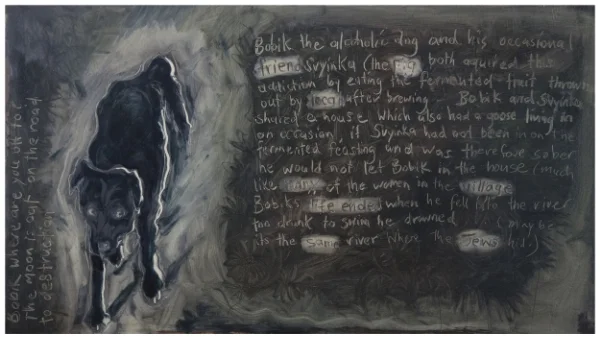 Bobik the alcoholic dog and his occasional
friend Svyinka (the pig both aquired this
addiction by eating the fermented fruit thrown
out by after brewing. Bobik and Svyinka
shared a house which also had a goose living in
on occasion, if Svyinka had not been in on the
fermented feasting and was therefore sober
he would not let Bobik in the house (much
like many of the women in the village
Bobiks life ended when he fell into the river
too drunk to swim he drowned (may be
its the same river where the Jews hid)
Bobik where are you off to?
The moon is out on the road
to destruction